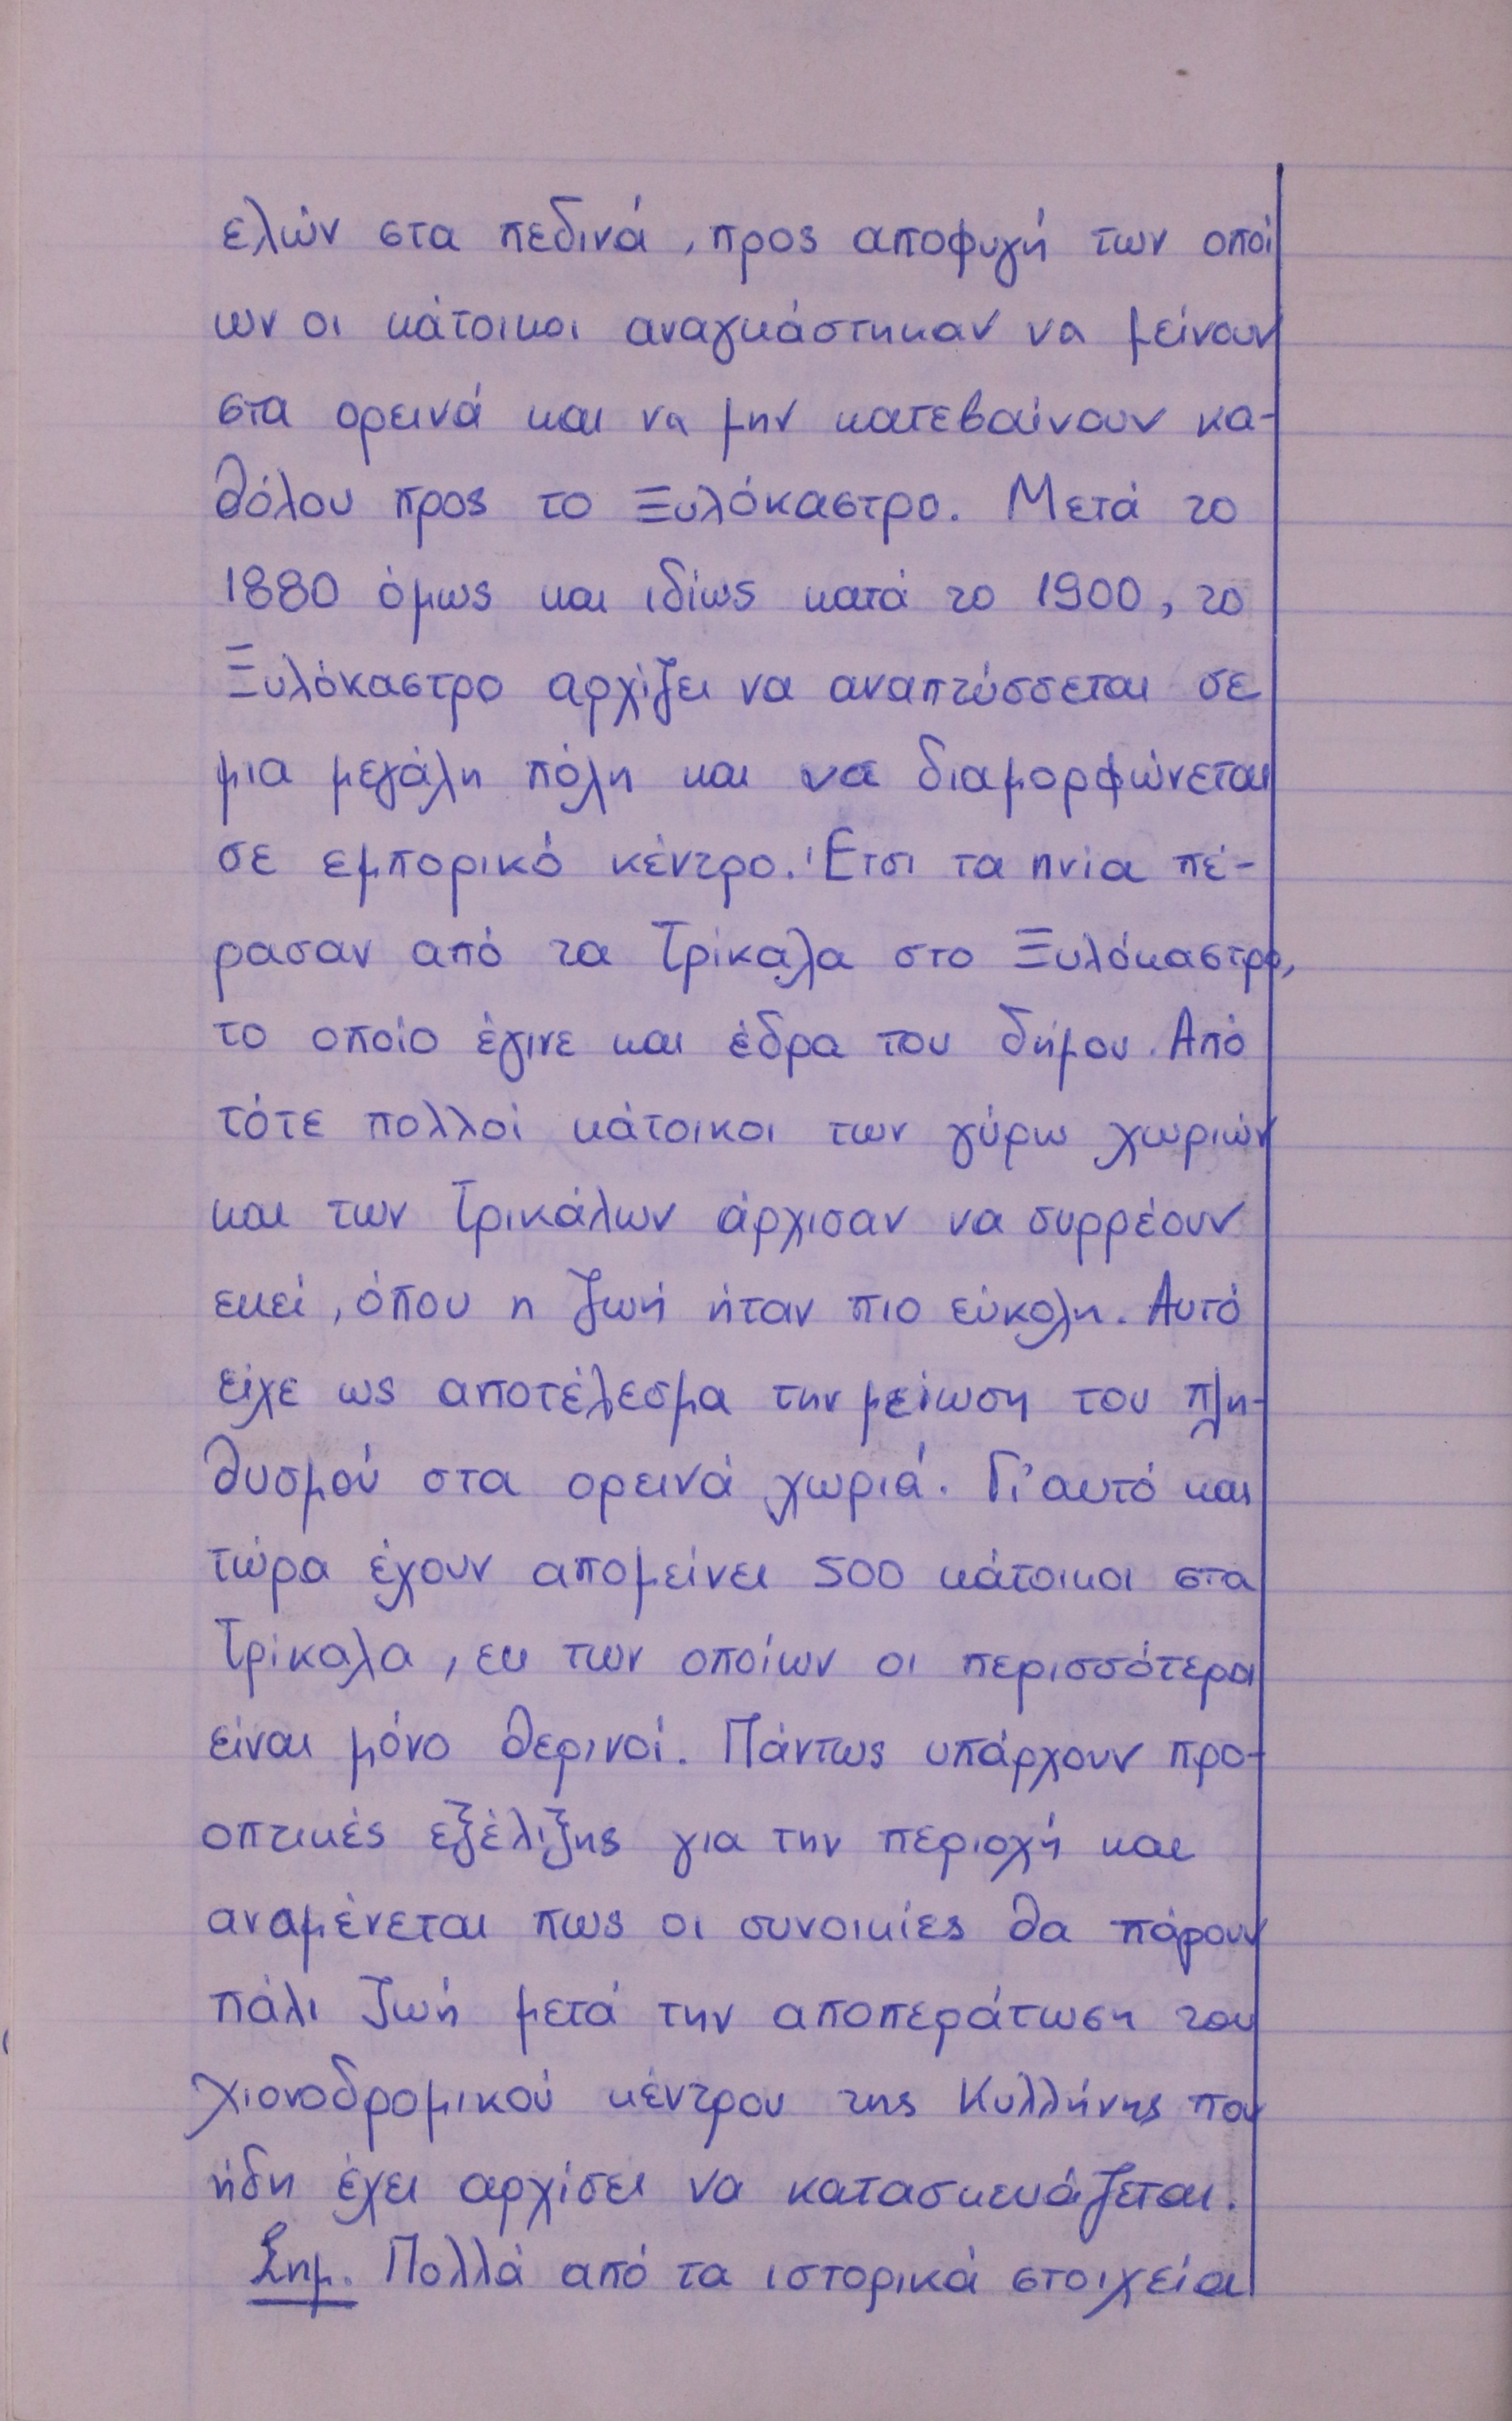 ελών στα πεδινά, προς αποφυγή των οποί
ων οι κάτοικοι αναγκάστηκαν να μείνουν
στα ορεινά και να μην κατεβαίνουν κα-
θόλου προς το Ξυλόκαστρο. Μετά το
1880 όμως και ιδίως κατά το 1900, το
Ξυλόκαστρο αρχίζει να αναπτύσσεται σε
μια μεγάλη πόλη και να διαμορφώνεται
σε εμπορικό κέντρο. Έτσι τα ηνία πέ-
ρασαν από τα Τρίκαλα στο Ξυλόκαστρο,
το οποίο έγινε και έδρα του δήμου. Από
τότε πολλοί κάτοικοι των γύρω χωριών
και των Τρικάλων άρχισαν να συρρέουν
εκεί, όπου η ζωή ήταν πιο εύκολη. Αυτό
είχε ως αποτέλεσμα την μείωση του πλη-
θυσμού στα ορεινά χωριά. Γι' αυτό και
τώρα έχουν απομείνει 500 κάτοικοι στα
Τρίκαλα, εκ των οποίων οι περισσότεροι
είναι μόνο θερινοί. Πάντως υπάρχουν προ-
οπτικές εξέλιξης για την περιοχή και
αναμένεται πως οι συνοικίες θα πάρουν
πάλι ζωή μετά την αποπεράτωση του
χιονοδρομικού κέντρου της Κυλλήνης που
ήδη έχει αρχίσει να κατασκευάζεται.
Σημ. Πολλά από τα ιστορικά στοιχεία